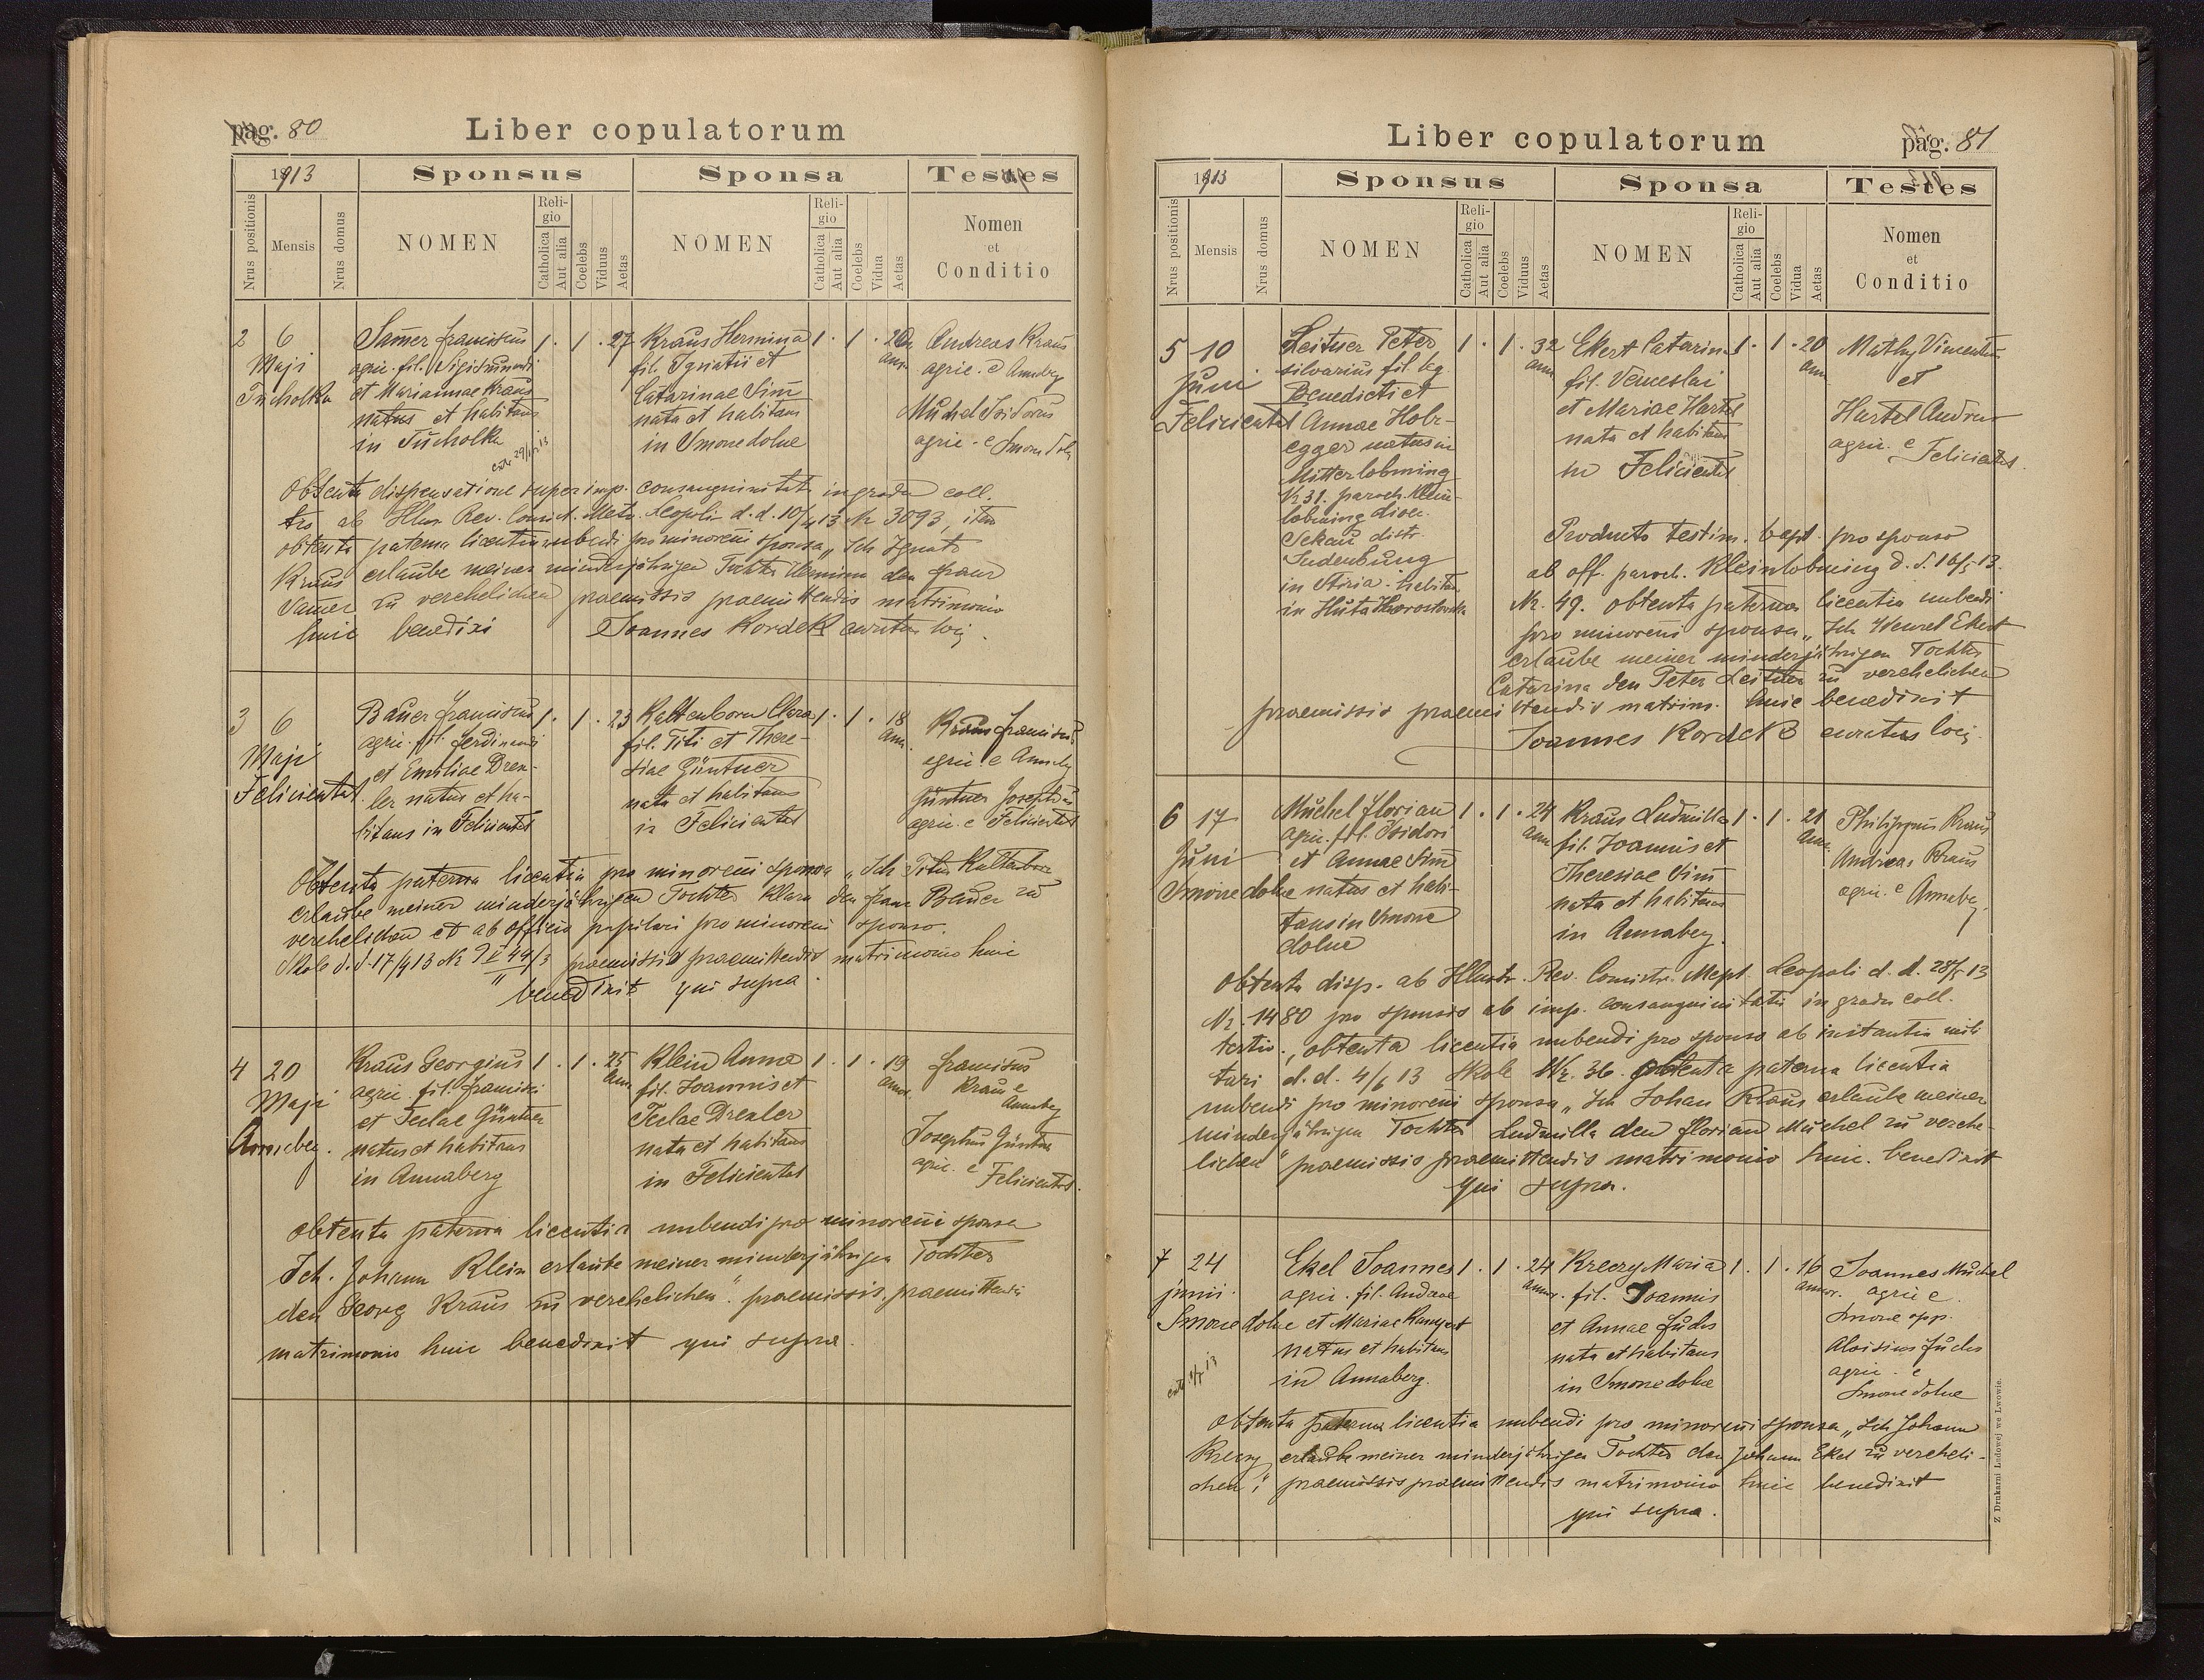 pag. 80
Liber copulatorum
1913
Sponsus
Sponsa
Testes
Nrus positionis
Mensis
Nrus domus
NOMEN
Religio
Catholica
Aut alia
Coelebs
Viduus
Aetas
NOMEN
Religio
Catholica
Aut alia
Coelebs
Vidua
Aetas
Nomen
et
Conditio
2 6
Maji
Tucholka
Samer Franciscus
agric. fil. Sigismundi
et Mariannae Kraus
natus et habitans
in Tucholka
1 . 1 . 27
Kraus Hermina
fil. Ignatii et
Catarinae Sim
nata et habitans
in Smorze dolne
1 . 1 . 20
ann.
Andreas Kraus
agric. e Annaberg
Muchel Isidorus
agric. e Smorze doln
Obtenta dispensatione super imp. consanguinitatis in gradu coll.
trs ab Illus. Rev. Consist. Metr. Leopoli d.d. 10/4 13 Nr 3093, item
obtenta paterna licentia nubendi pro minoreni sponsa „Ich Ignatz
Kraus erlaube meiner minderjährigen Tochter Hermina den Franz
Samer zu verehelichen praemissis praemittendis matrimonio
huic benedixi Joannes Kordek curatus loci.
3 6
Maji
Felicientat
Bauer Franciscus
agric. fil. Ferdinandi
et Emiliae Drex-
ler natus et ha-
bitans in Felicientat
1 . 1 . 23
Kaltenborn Clara
fil. Titi et There-
siae Güntner
nata et habitans
in Felicientat
1 . 1 . 18
ann.
Kraus Franciscus
agric. e Annaberg
Güntner Josephus
agric. e Felicientat
Obtenta paterna licentia pro minoreni sponsa „Ich Titus Kaltenborn
erlaube meiner minderjährigen Tochter Klara den Franz Bauer zu
verehelichen et ab officio pupilari pro minoreni sponso.
Skole d.d. 17/4 13 Nr praemissis praemittendis matrimonio huic
benedixit qui supra.
4 20
Maji
Annaberg.
Kraus Georgius
agric. fil. Francisci
et Teclae Güntner
natus et habitans
in Annaberg
1 . 1 . 25
ann.
Klein Anna
fil. Joannis et
Teclae Drexler
nata et habitans
in Felicientat
1 . 1 . 19
annor.
Franciscus
Kraus e
Annaberg
Josephus Güntner
agric. e
Felicientat.
Obtenta paterna licentia nubendi pro minoreni sponsa
Ich Johann Klein erlaube meiner minderjährigen Tochter
den Georg Kraus zu verehelichen". praemissis praemittendis
matrimonio huic benedixit qui supra.
Liber copulatorum
pag. 81
1913
Sponsus
Sponsa
Testes
Nrus positionis
Mensis
Nrus domus
NOMEN
Religio
Catholica
Aut alia
Coelebs
Viduus
Aetas
NOMEN
Religio
Catholica
Aut alia
Coelebs
Vidua
Aetas
Nomen
et
Conditio
5 10
Juni
Felicientat
Leitner Peter
silvarius fil. leg.
Benedicti et
Annae Holz-
egger natus in
Mitterlobming
Nr 31. paroch. Klein-
lobming dioec.
Sekau distr.
Judenburg
in Stiria. habitans
in Huta
1 . 1 . 32
ann.
Ekert Catarina
fil. Venceslai
et Mariae Hartel
nata et habitans
in Felicientat
1 . 1 . 20
ann.
Mathy Vincentius
et
Hartel Andreas
agric. e Felicientat.
Producto testim. bapt. pro sponso
ab off. paroch. Kleinlobming d.d. 16/5 13.
Nr. 49. obtenta paterna licentia nubendi
pro minoreni sponsa „Ich Wenzel Ekert
erlaube meiner minderjährigen Tochter
Catarina den Peter Leitner zu verehelichen
praemissis praemittendis matrim. huic benedixit
Joannes Kordek curatus loci.
6 17
Juni
Smorze dolne
Muchel Florian
agric. fil. Isidori
et Annae Sim
natus et habi-
tans in Smorze
dolne
1 . 1 . 24
ann.
Kraus Ludmilla
fil. Joannis et
Theresiae Sim
nata et habitans
in Annaberg
1 . 1 . 21
ann.
Philippus Kraus
Andreas Kraus
agric. e Annaberg
Obtenta disp. ab Illustr. Rev. Consistr. Mept. Leopoli d.d. 28/5 13
Nr. 1480 pro sponsis ab imp. consanguinitatis in gradu coll.
tertio., obtenta licentia nubendi pro sponso ab instantia mili
tari d.d. 4/6 13 Skole Nr. 36. obtenta paterna licentia
nubendi pro minoreni sponsa „Ich Johan Kraus erlaube meiner
minderjährigen Tochter Ludmilla den Florian Muchel zu verehe-
lichen" praemissis praemittendis matrimonio huic. benedixit
qui supra.
7 24
juni.
Smorze dolne
Ekel Joannes
agric. fil. Andreae
et Mariae
natus et habitans
in Annaberg.
1 . 1 . 24
annor.
Kreczy Maria
fil. Joannis
et Annae Fuchs
nata et habitans
in Smorze dolne
1 . 1 . 16
annor.
Joannes Muchel
agric e.
Smorze opp.
Aloisius Fuchs
agric. e
Smorze dolne
Obtenta paterna licentia nubendi pro minoreni sponsa „Ich Johann
Kreczy erlaube meiner minderjährigen Tochter den Johann Ekel zu vereheli-
chen", praemissis praemittendis matrimonio huic benedixit
qui supra.
Z Drukarni Ludowej we Lwowie.